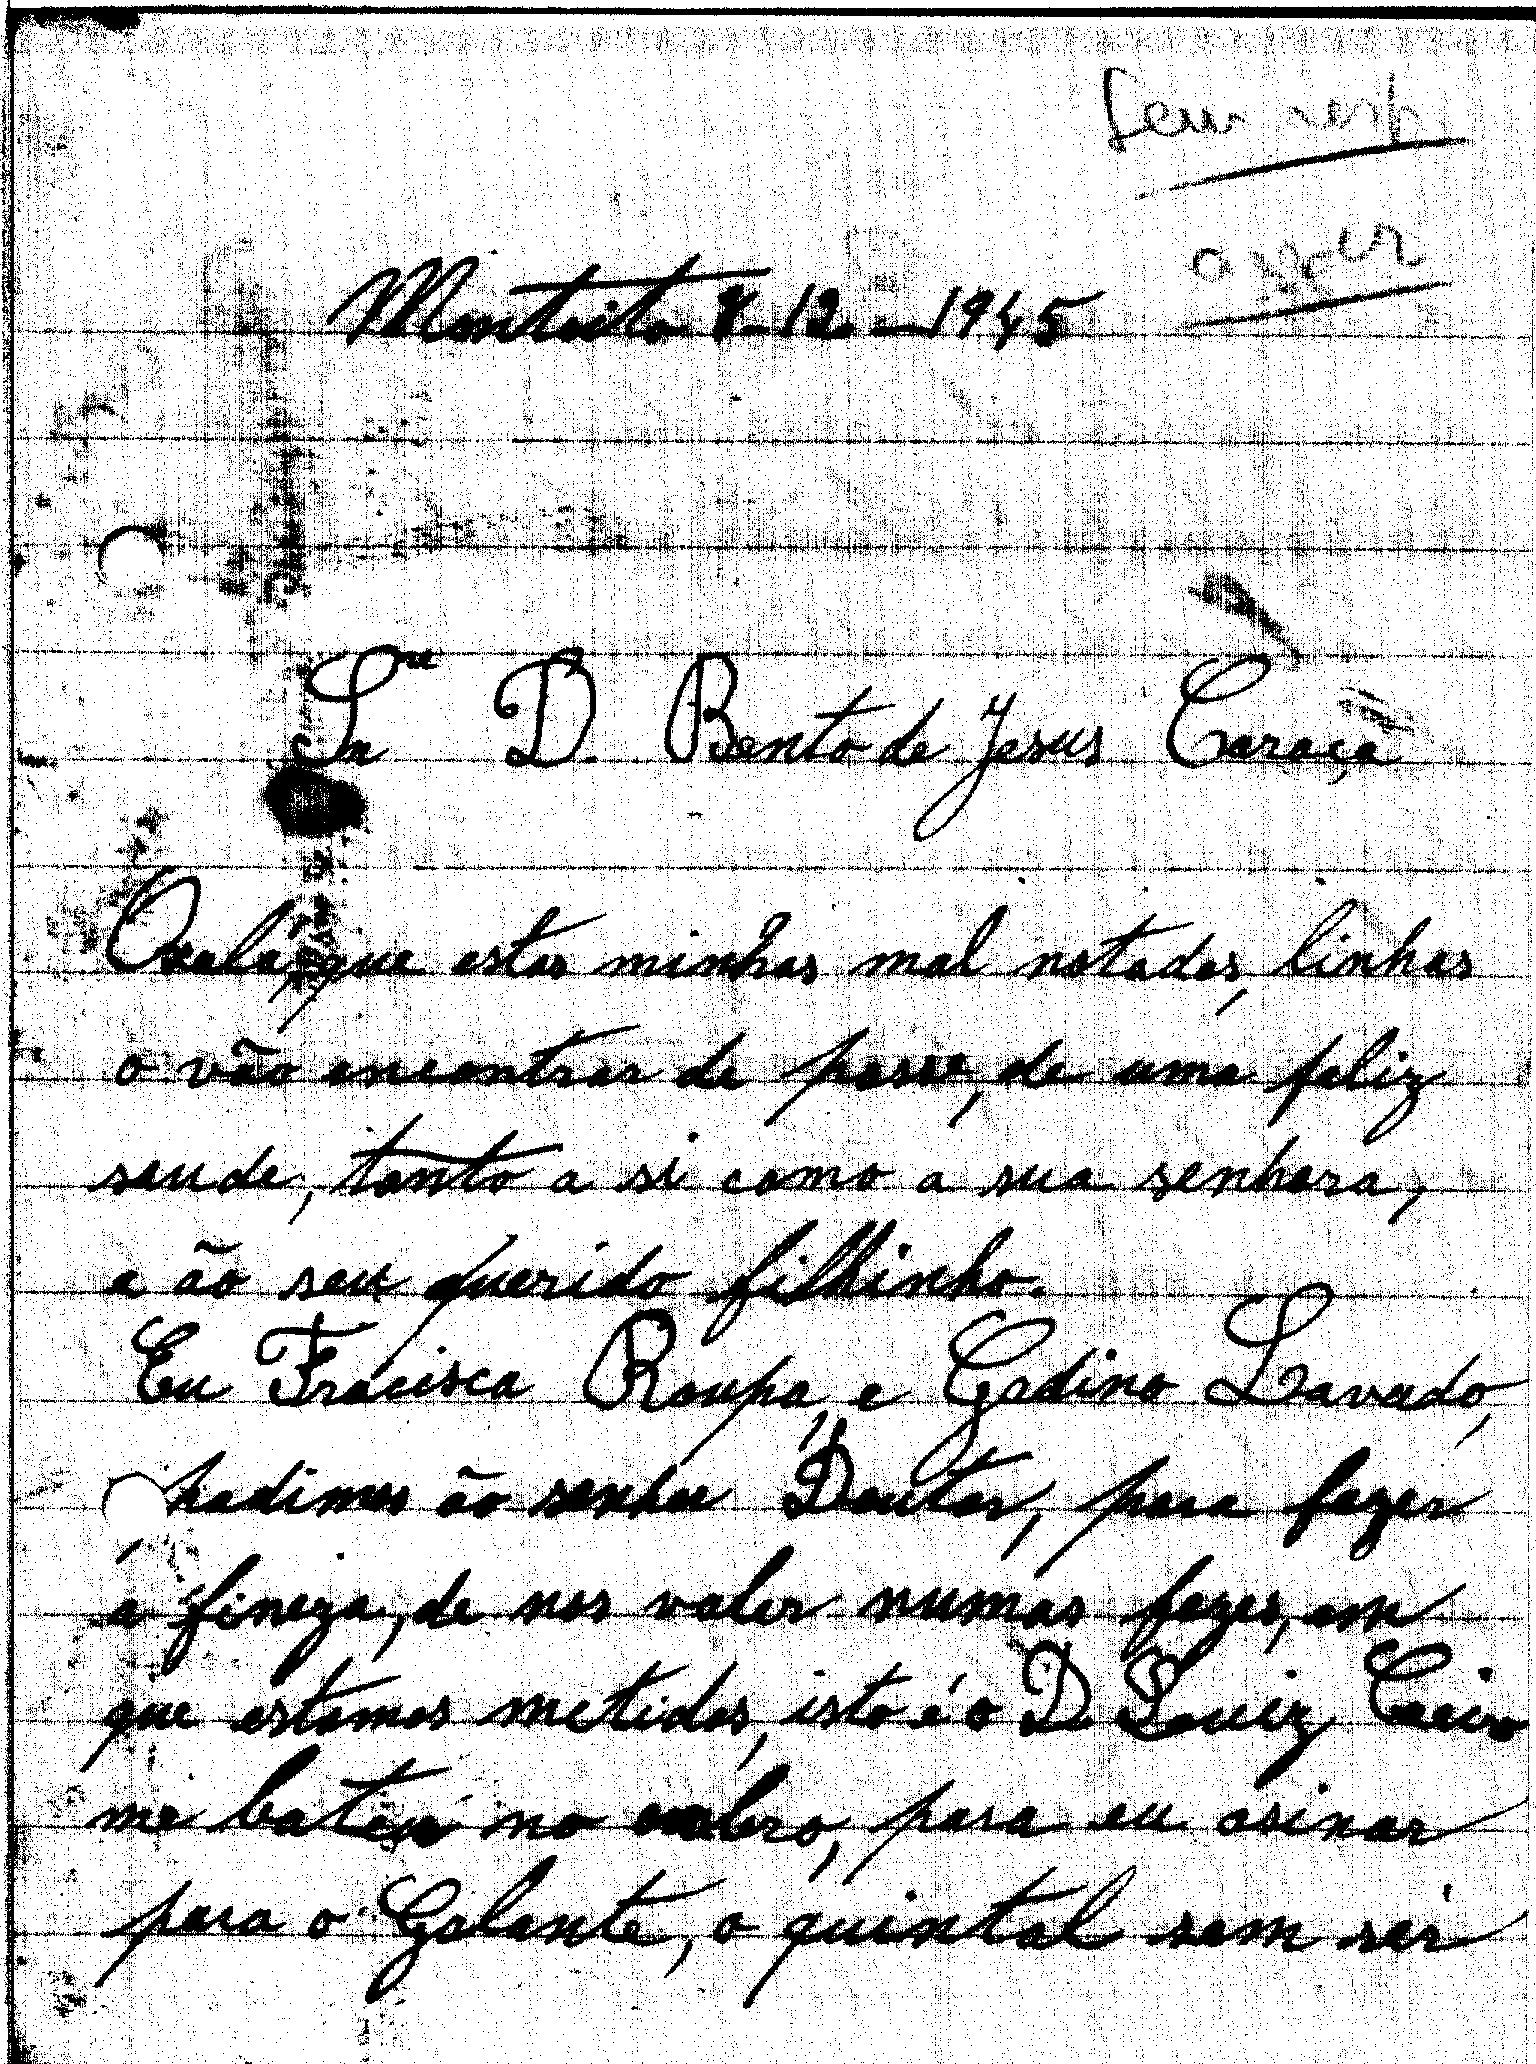 Sem resp.
Montoito 8-12-1945
Snr D. Bento de Jesus Caraça
Oxalá, que estas minhas mal notadas, linhas
o vão encontrar de posse, de uma feliz
saude, tanto a si como a sua senhora,
e ão seu querido filhinho.
Eu Fracisca Roupa, e Gedino Lavado,
padimos ão senhor Doutor, para fazer
a fineza, de nos valer numas fezes, em
que estamos metidos, isto é o D. Louiz
me bateu no ombro, para eu asinar
para o Galante, o quintal sem ser